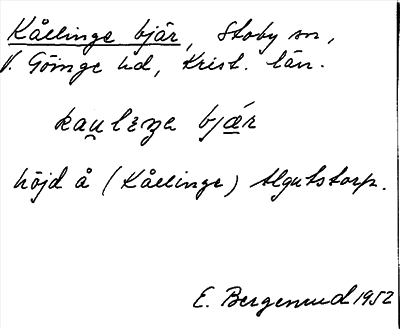 Kållinge bjär, Stoby sn,
V. Göinge hd, Krist. län.
kaulεŋa bjær
höjd å (Kållinge) Algutstorp.
E. Bergenrud 1952